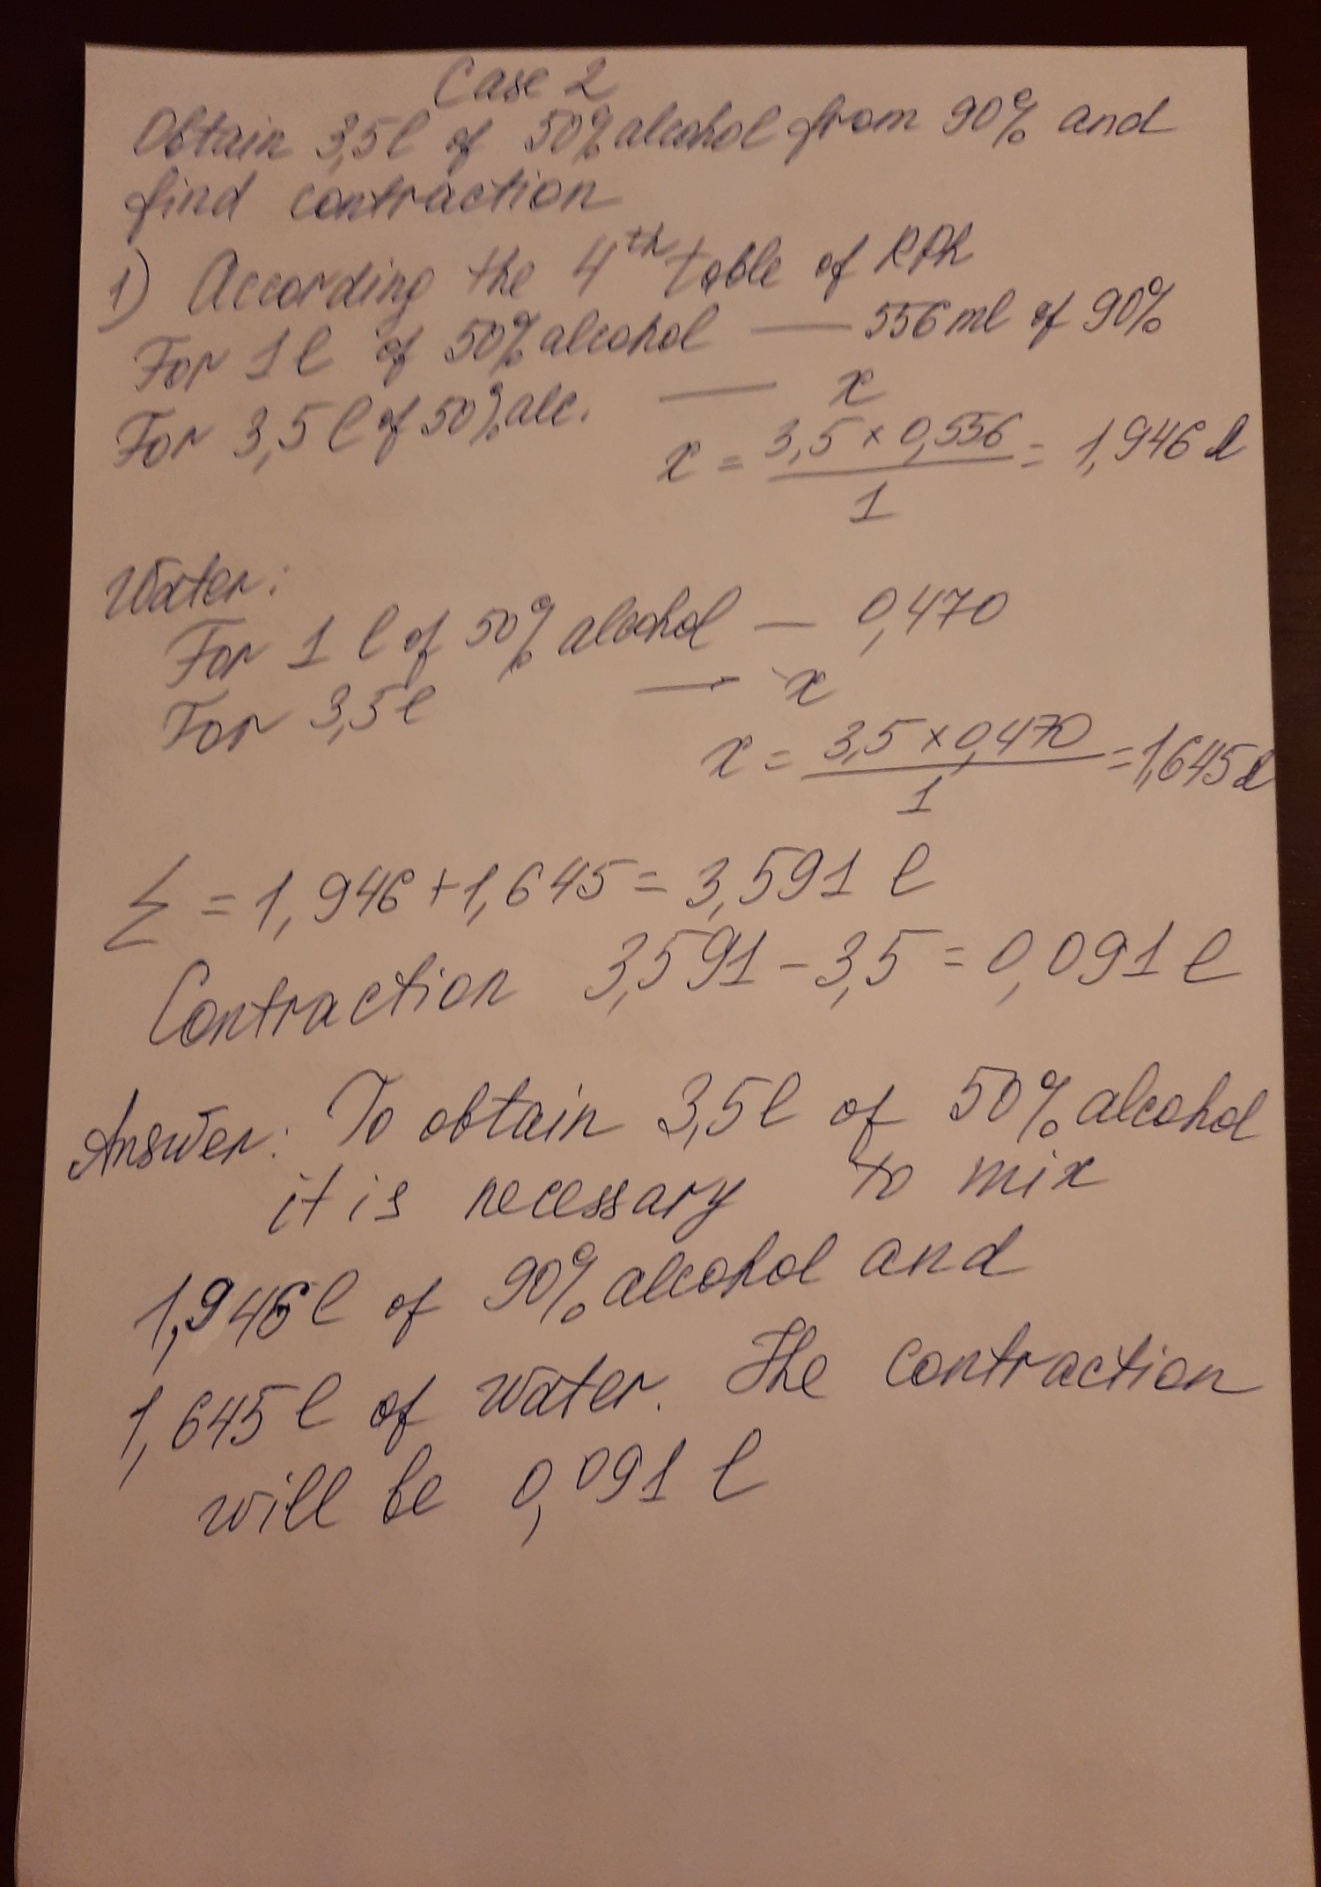 Case 2
Obtain 3,5l of 50% alcohol from 90% and
find contraction
1) According the 4th table of RPh
For 1l of 50% alcohol — 556 ml of 90%
For 3,5l of 50% alc. — x
x = 3,5 × 0,556 / 1 = 1,946 l
Water:
For 1 l of 50% alcohol — 0,470
For 3,5l — x
x = 3,5 × 0,470 / 1 = 1,645 l
Σ = 1,946 + 1,645 = 3,591 l
Contraction 3,591 - 3,5 = 0,091 l
Answer: To obtain 3,5l of 50% alcohol
it is necessary to mix
1,946l of 90% alcohol and
1,645l of water. The contraction
will be 0,091 l